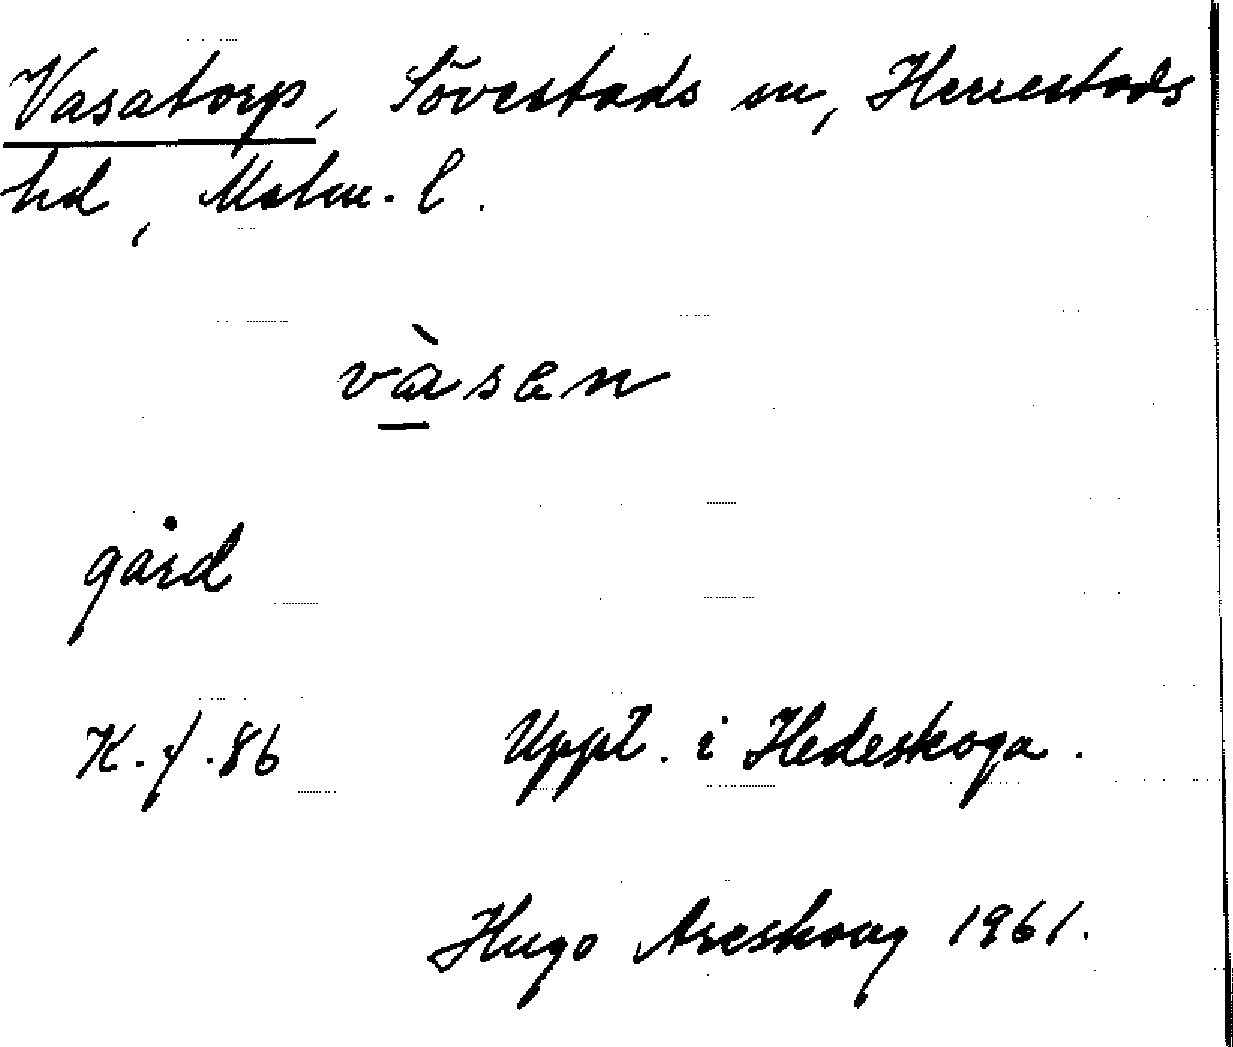 Vasatorp, Sövestads sn, Herrestads
hd, Malm. l.
vàsen
gård
K. f. 86 Uppt. i Hedeskoga.
Hugo Areskoug 1961.